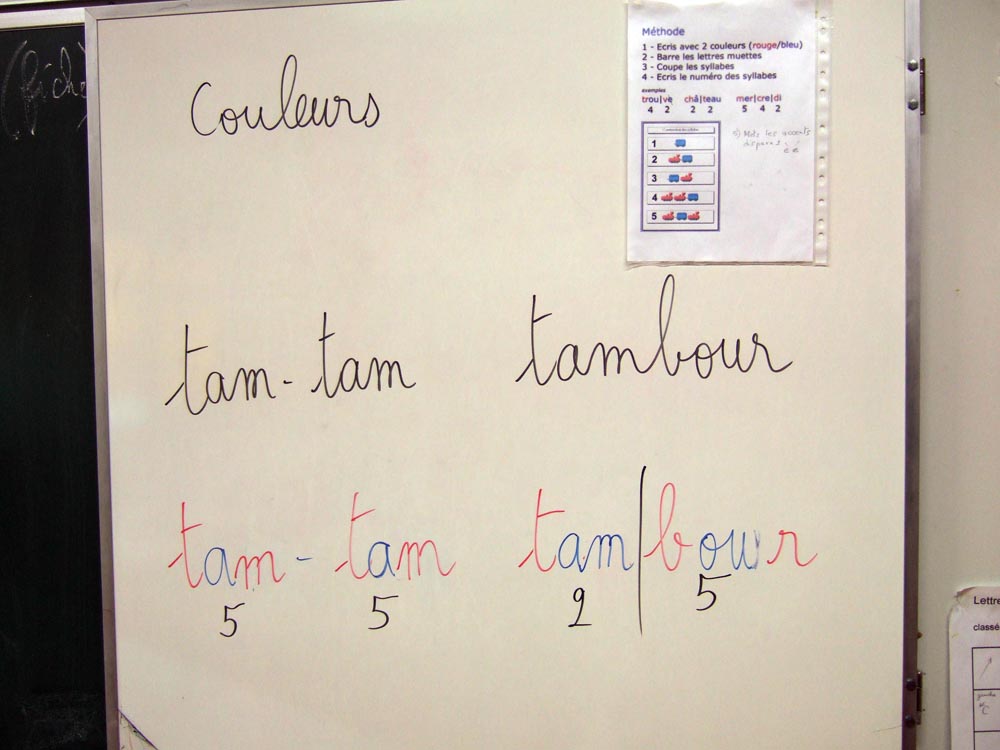 Couleurs
Méthode
1 - Ecris avec 2 couleurs (rouge/bleu)
2 - Barre les lettres muettes
3 - Coupe les syllabes
4 - Ecris le numéro des syllabes
exemples
trou|ve châ|teau mer|cre|di
4 2 2 2 5 4 2
5) Mets les accents
disparus è é
1
2
3
4
5
tam-tam tambour
tam - tam tam|bour
5 5 2 5
Lettre
classé